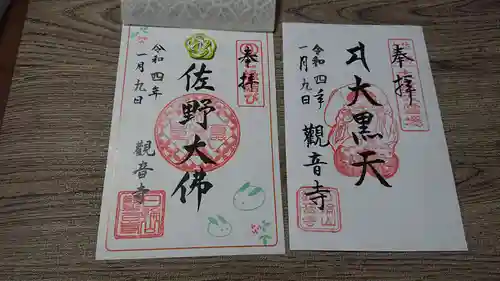 奉拝
佐野大佛
令和四年
一月九日
觀音寺
奉拝
大黒天
令和四年
一月九日
觀音寺